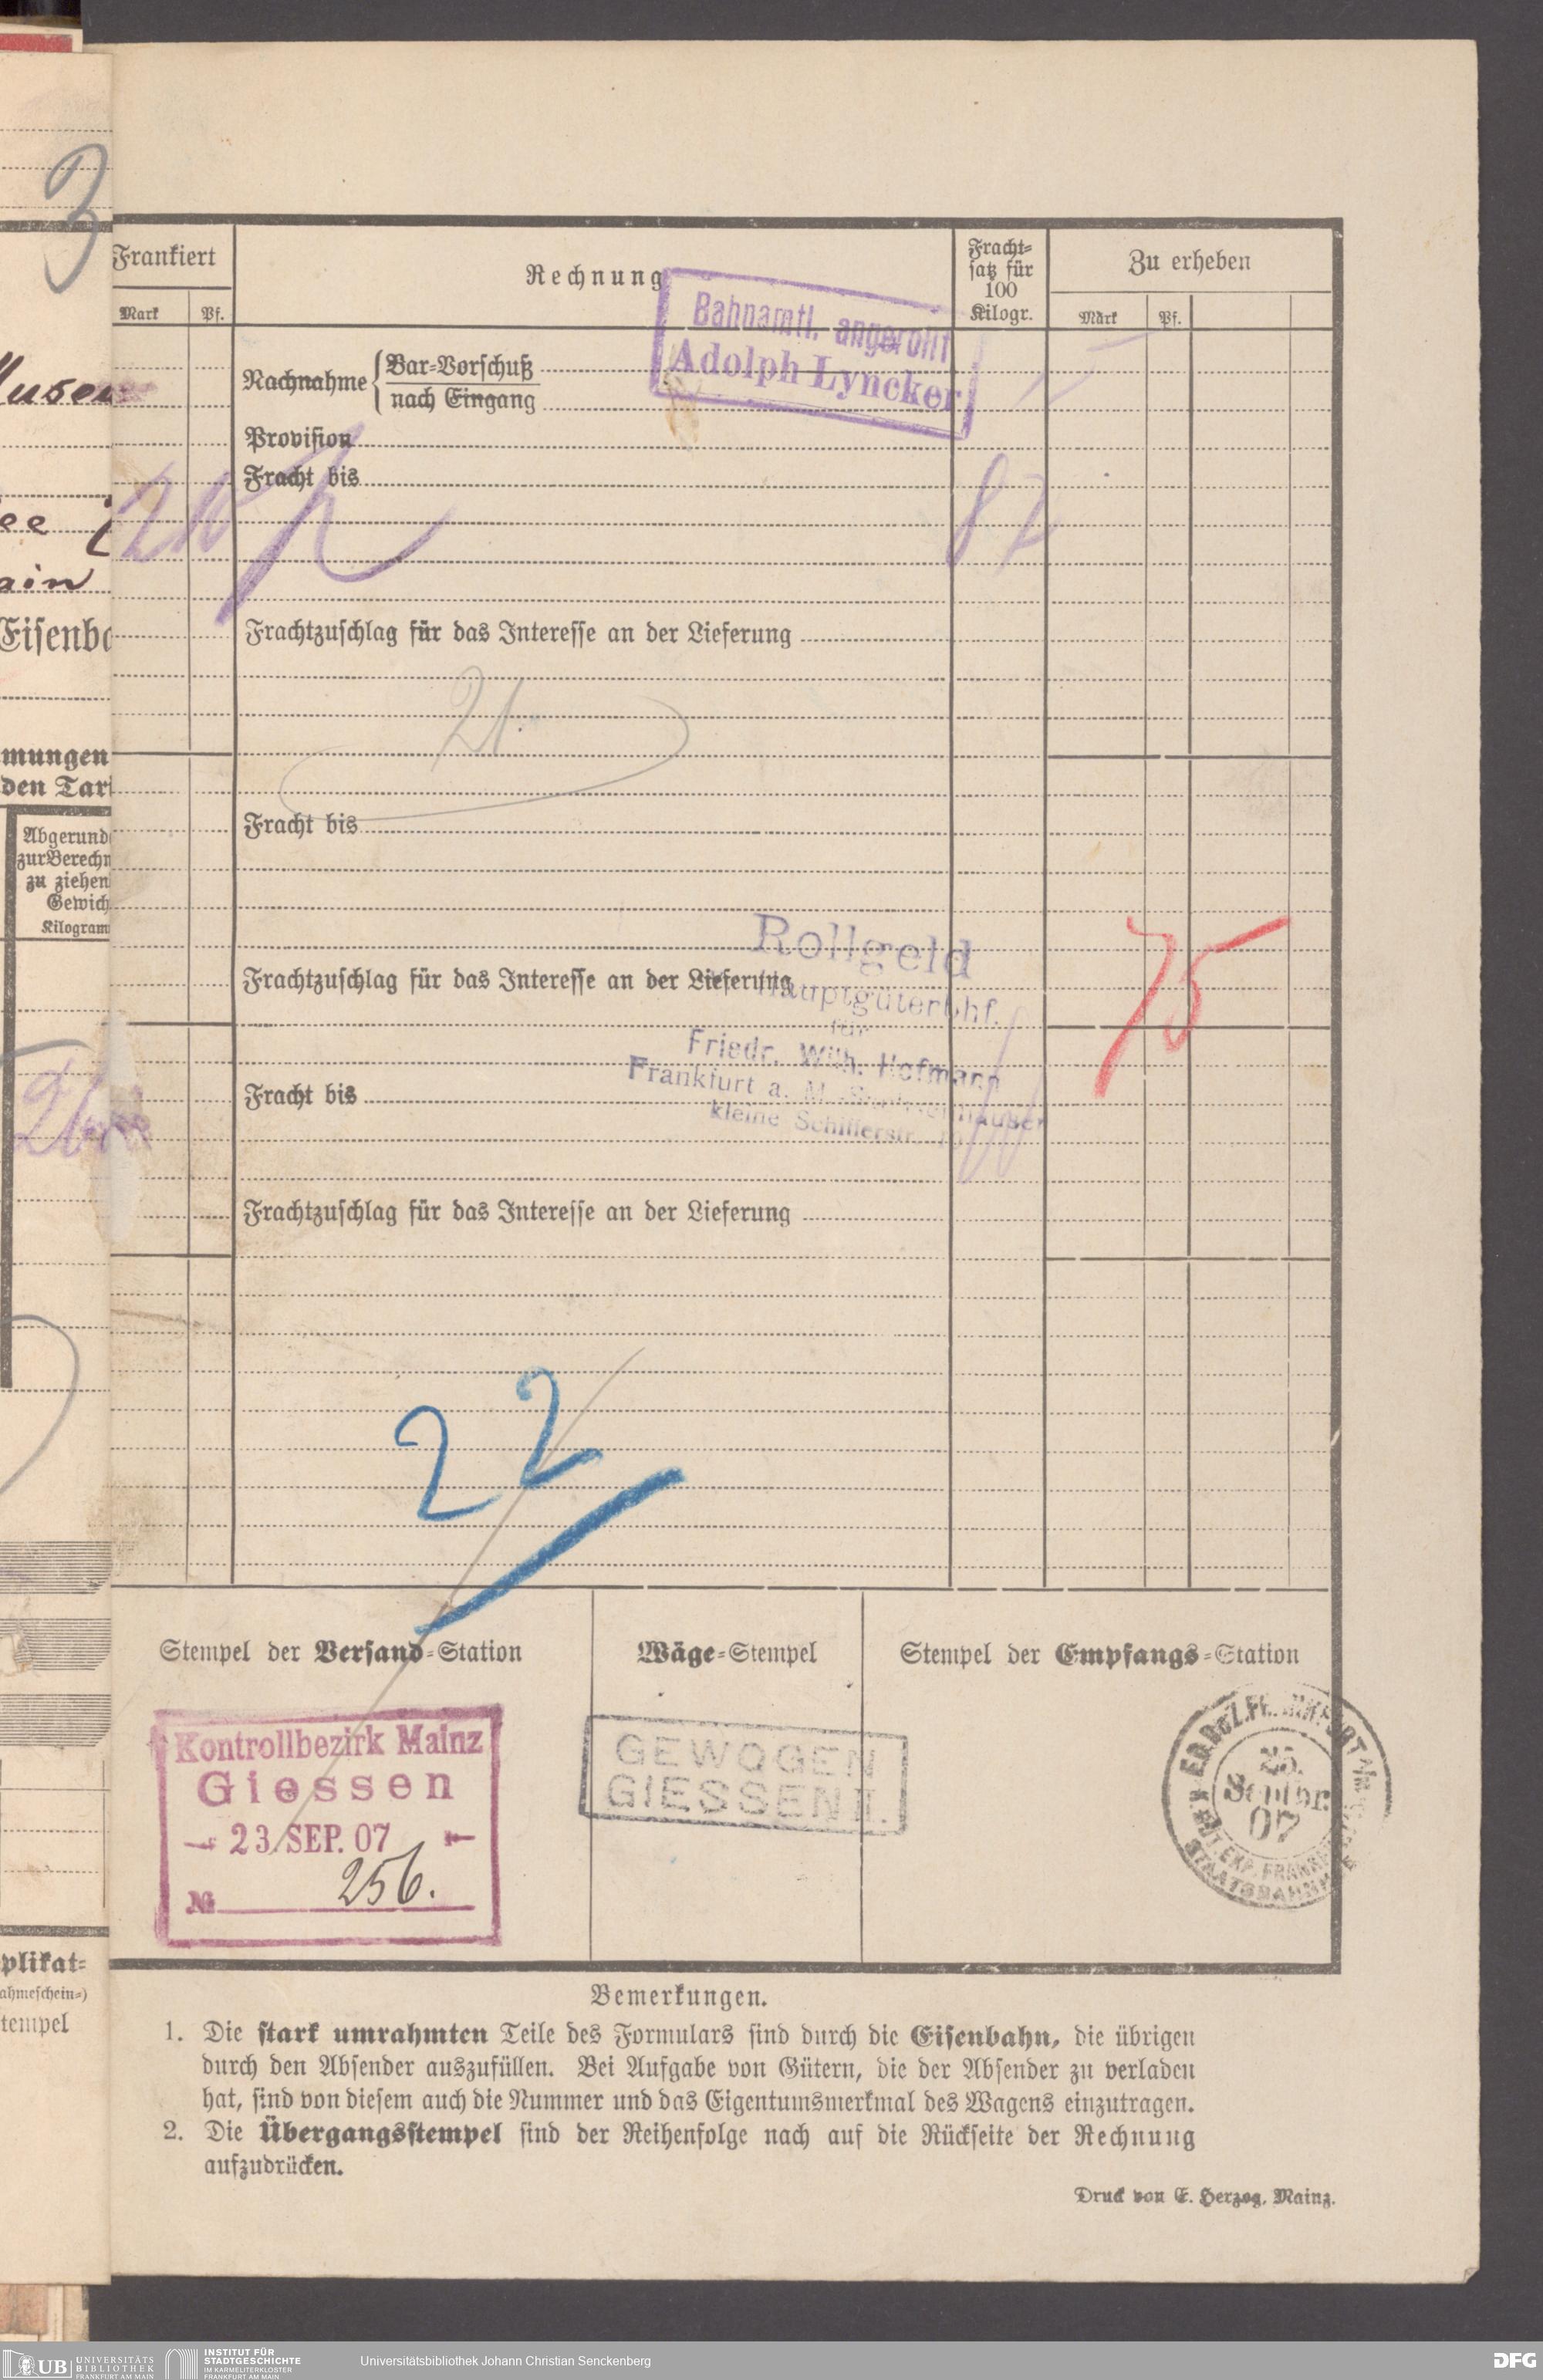 3
Museu
ee
ain
Eisenba
mungen
den Tari
Abgerund
zur Berechn
zu ziehen
Gewich
Kilogram
plikat-
ahmeschein-)
tempel
Frankiert
Mark Pf.
Rechnung
Fracht-
satz für
100
Kilogr.
Zu erheben
Mark Pf.
Bahnamtl. angerollt
Adolph Lyncker
Nachnahme { Bar-Vorschuß
nach Eingang
Provision
Fracht bis
Frachtzuschlag für das Interesse an der Lieferung
21.
Fracht bis
Rollgeld
Frachtzuschlag für das Interesse an der Lieferung
Hauptgüterbhf.
für
Friedr. Wilh. Hofmann
Frankfurt a. M.-Sachsenhausen
Fracht bis
kleine Schifferstr.
75
Frachtzuschlag für das Interesse an der Lieferung
22
Stempel der Versand-Station
Wäge-Stempel
Stempel der Empfangs-Station
Kontrollbezirk Mainz
Giessen
23. SEP. 07
№ 256.
GEWOGEN
GIESSEN II.
25.
Septbr.
07
STAATSBAHNHOF
Bemerkungen.
1. Die stark umrahmten Teile des Formulars sind durch die Eisenbahn, die übrigen
durch den Absender auszufüllen. Bei Aufgabe von Gütern, die der Absender zu verladen
hat, sind von diesem auch die Nummer und das Eigentumsmerkmal des Wagens einzutragen.
2. Die Übergangsstempel sind der Reihenfolge nach auf die Rückseite der Rechnung
aufzudrücken.
Druck von E. Herzog, Mainz.
UB UNIVERSITÄTS
BIBLIOTHEK
FRANKFURT AM MAIN
INSTITUT FÜR
STADTGESCHICHTE
IM KARMELITERKLOSTER
FRANKFURT AM MAIN
Universitätsbibliothek Johann Christian Senckenberg
DFG